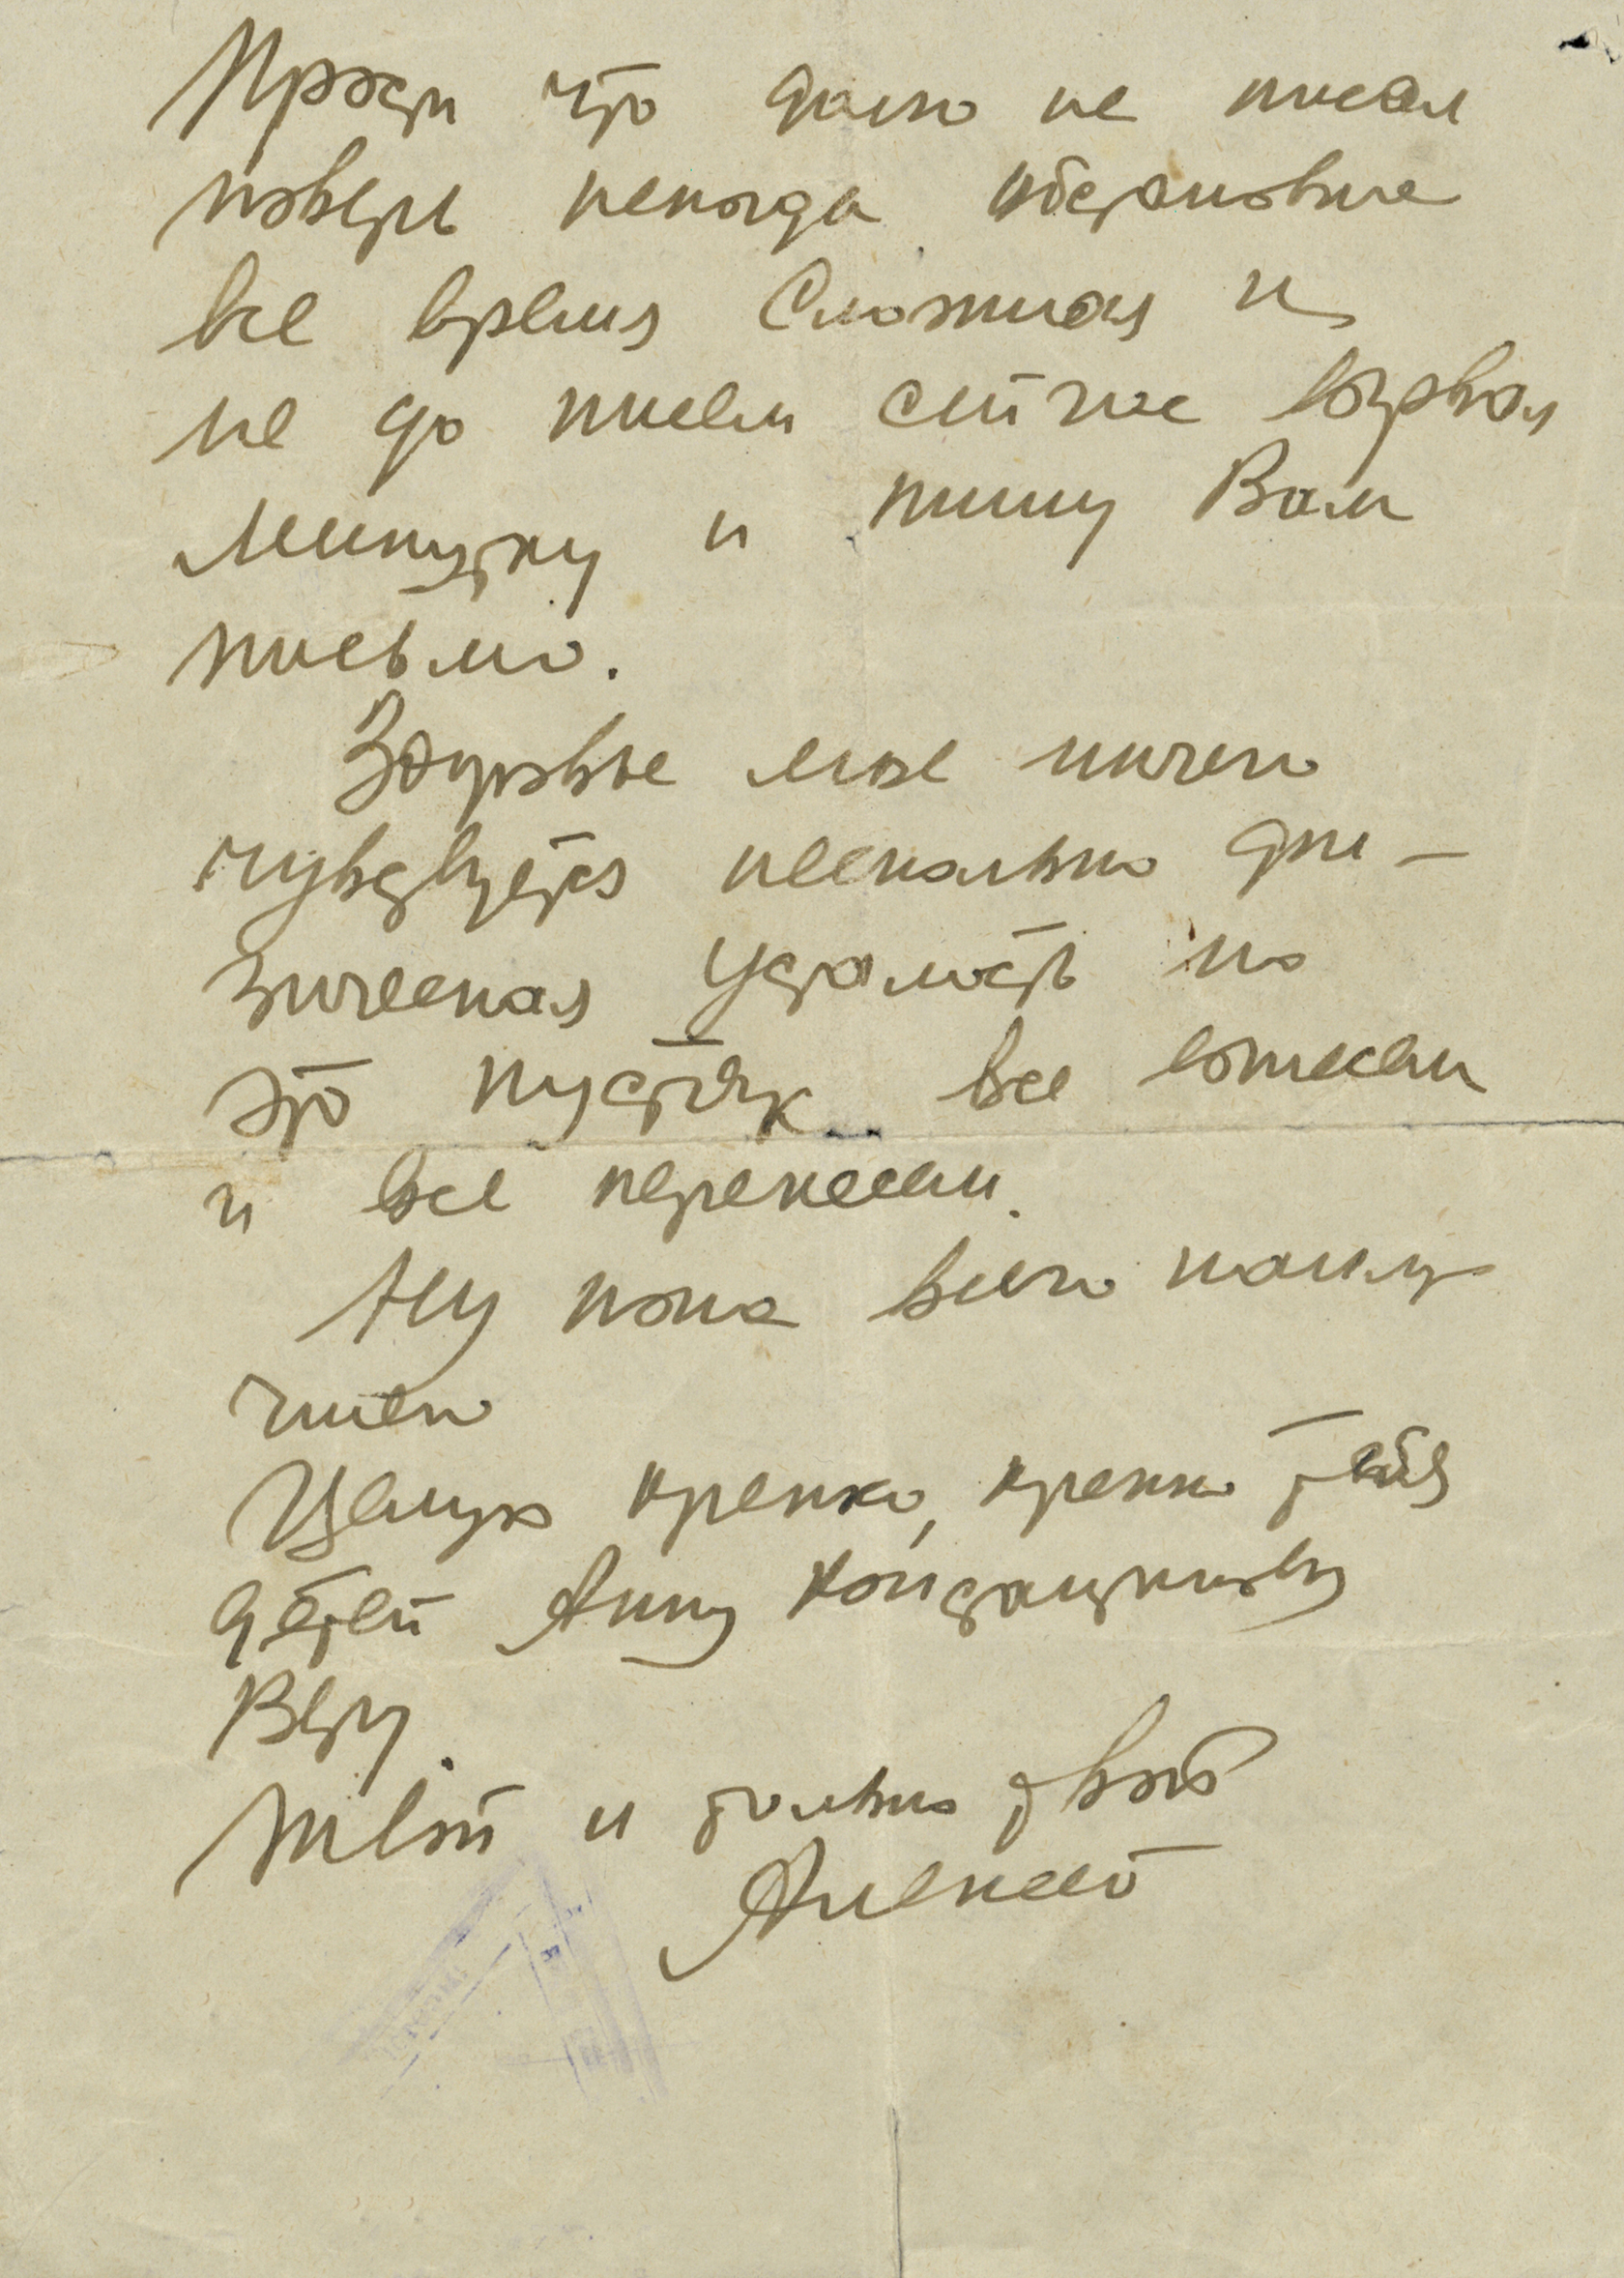 Прости что долго не писал
поверь некогда обстановка
все время сложная и
не до писем сейчас ворвал
минутку и пишу Вам
письмо.
Здоровье мое ничего
чувствуется несколько фи-
зическая усталость но
это пустяк все снесем
и все перенесем.
Ну пока всего наилу
чшего
Целую крепко, крепко тебя
детей Анну Константиновну
Веру.
Твой и только твой
Алексей